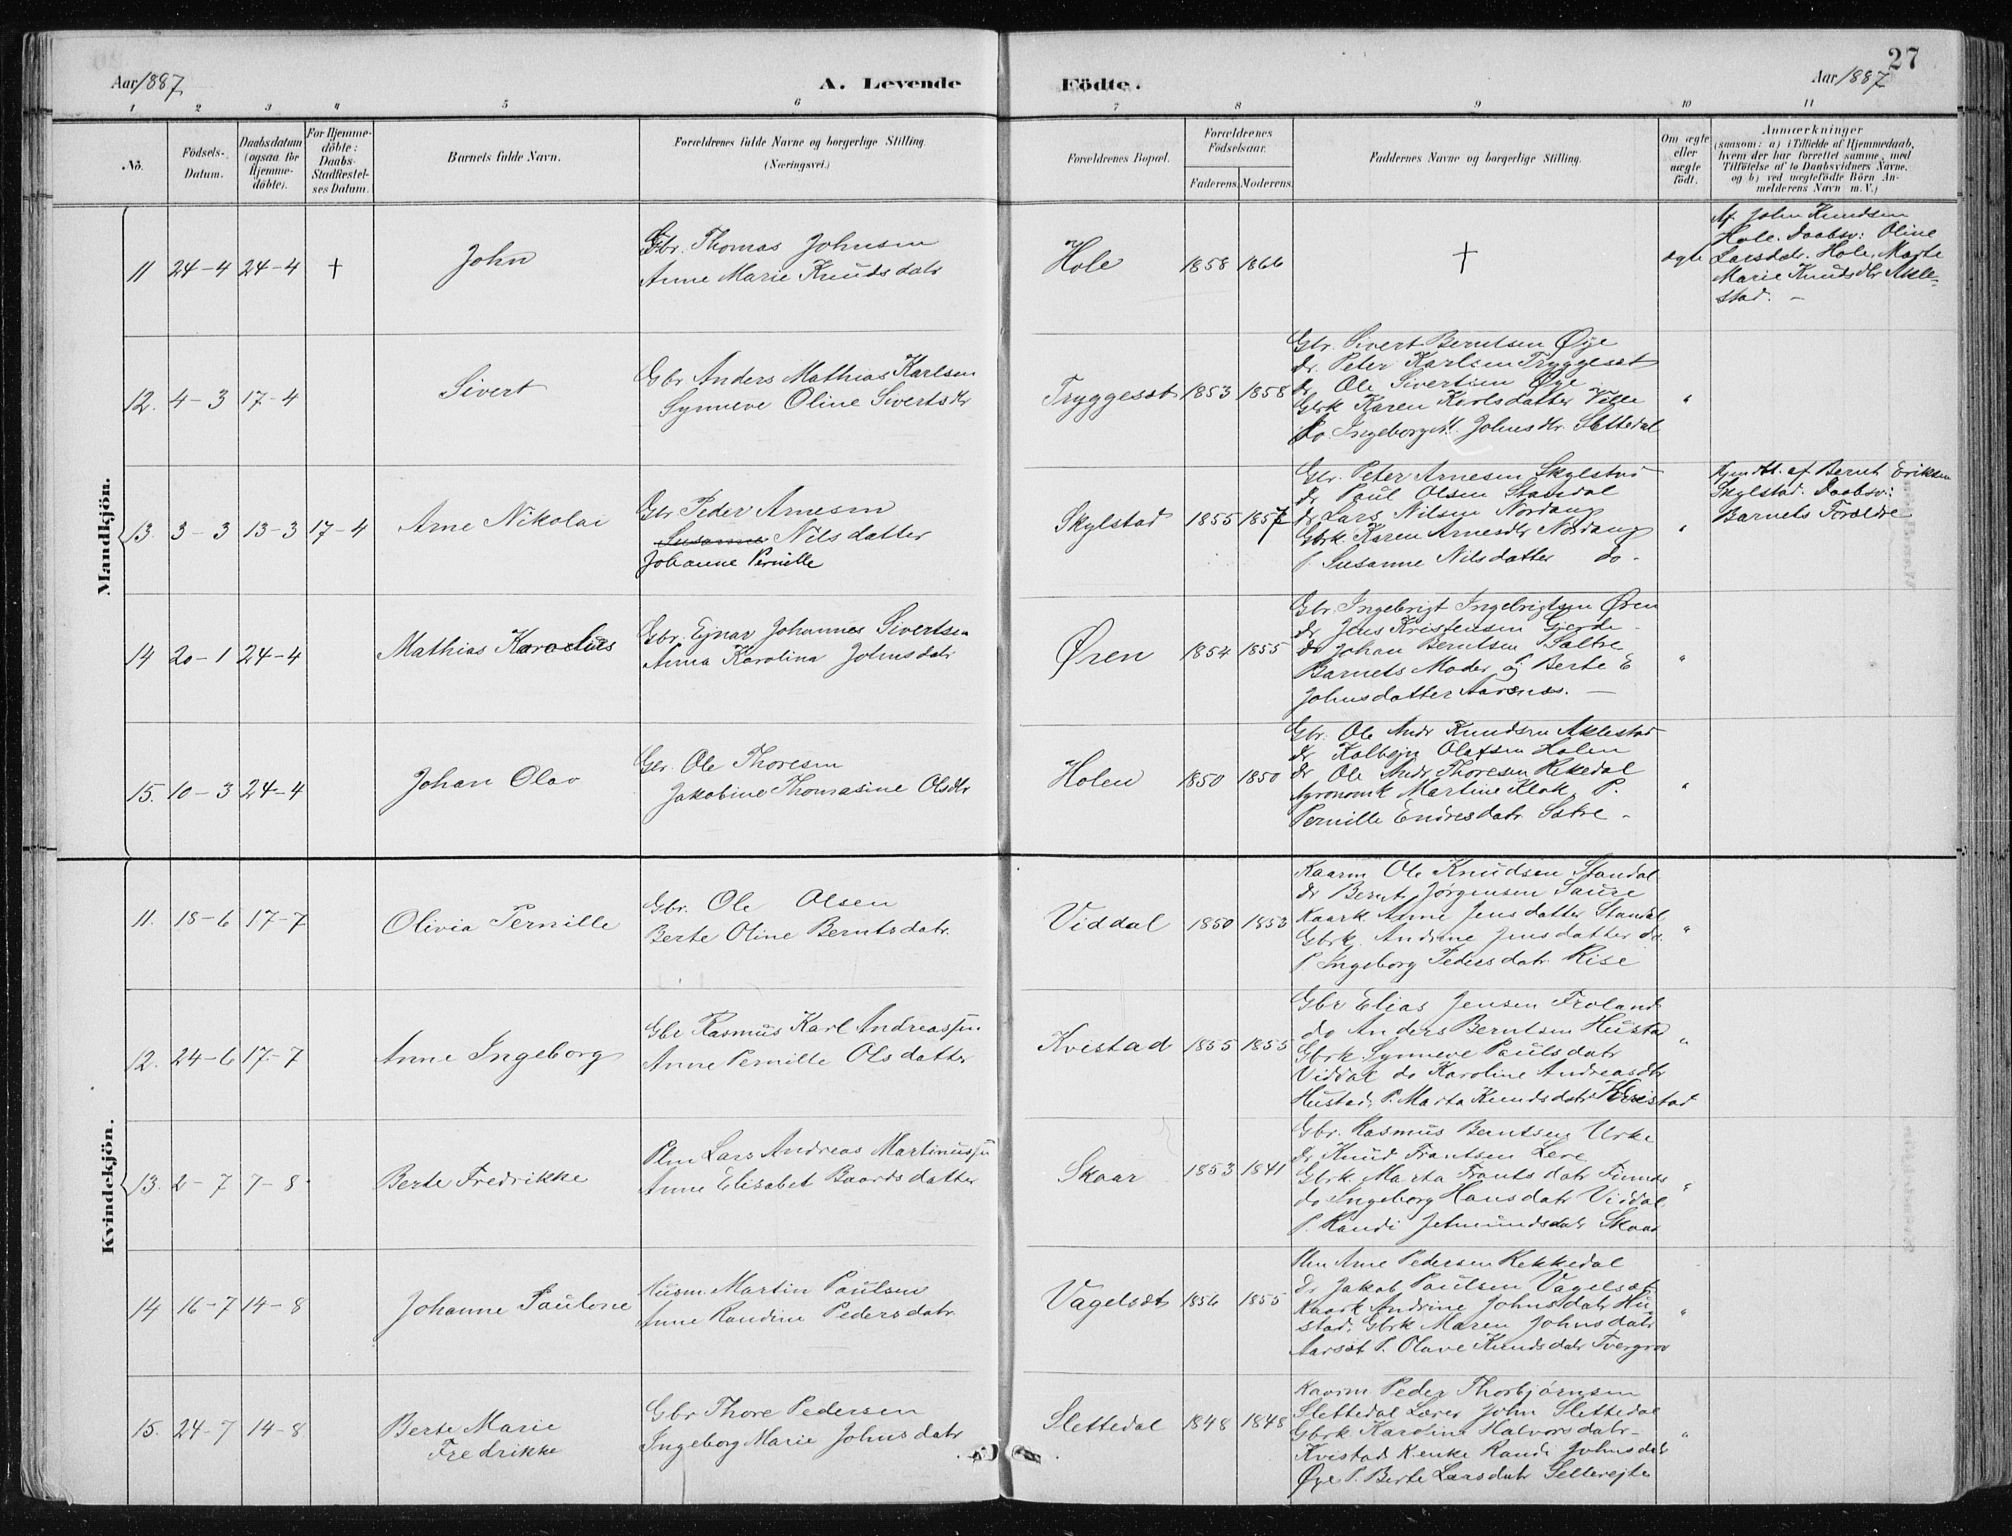 27
Aar 1887
A. Levende
Födte.
Aar 1887
1 2 3 4 5 6 7 8 9 10 11
No.
Födsels-
Datum.
Daabsdatum
(ogsaa for
Hjemme-
döbte).
For Hjemme-
döbte:
Daabs-
Stadfæstel-
ses Datum.
Barnets fulde Navn.
Forældrenes fulde Navne og borgerlige Stilling
(Næringsvei.)
Forældrenes Bopæl.
Forældrenes
Födselsaar.
Faderens. Moderens.
Faddernes Navne og borgerlige Stilling.
Om ægte
eller
uægte
födt.
Anmærkninger
(saasom: a) i Tilfælde af Hjemmedaab,
hvem der har forrettet samme, med
Tilföielse af to Daabsvidners Navne,
og b) ved uægtefödte Börn An-
melderens Navn m. V.)
Mandkjön.
11 24-4 24-4 † John
Gbr. Thomas Johnsen
Anne Marie Knudsdatr
Hole 1858 1866 † ægte
Af John Knudsen
Hole. Daabsv: Oline
Larsdatr. Hole, Marte
Marie Knutsdtr Akle-
stad. –
12. 4-3 17-4 Sivert
Gbr Anders Mathias Karlsen
Synneve Oline Sivertsdtr
Tryggesæt 1853 1858
Gbr. Sivert Berntsen Øye
do. Peter Karlsen Tryggesæt
do. Ole Sivertsen Øye
Gbrk Karen Karlsdatter Ville
Do Ingeborg M. Johnsdtr. Slettedal
"
13. 3-3 13-3 17-4 Arne Nikolai
Gbr Peder Arnesen
Susanne Nilsdatter
Johanne Pernille
Skylstad 1855 1857
Gbr. Peter Arnesen Skylstad
do Paul Olsen Standal
do Lars Nilsen Nordang
Gbrk. Karen Arnesdtr Nordang
P Susanne Nilsdatter do.
"
Hjemdbt. af Bernt Eriksen
Skylstad. Daabsv:
Barnets Forældre
14 20-1 24-4 Mathias Karolius
Gbr. Ejnar Johannes Sivertsen
Anna Karolina Johnsdatr
Øren 1854 1855
Gbr. Ingebrigt Ingebrigtsen Øren
do Jens Kristensen Gjerde
do Johan Berntsen Sætre
Barnets Moder og Berte E
Johnsdatter Aarsnes. –
"
15. 10-3 24-4 Johan Olav
Gbr. Ole Thoresen
Jakobine Thomasine Olsdtr
Holen 1850 1850
Gbr. Ole Andr Knudsen Aklestad
do Kolbejn Olafsen Holen
do Ole Andr Thoresen Rekedal
Agronomk Martine Klok. P.
Pernille Endresdatr Sætre.
"
Kvindekjön.
11. 18-6 17-7 Olivia Pernille
Gbr. Ole Olsen
Berte Oline Berntsdatr.
Viddal 1850 1853
Kaarm Ole Knudsen Standal
do Bernt Jørgensen Saure
Kaark Anne Jensdatter Standal
Gbrk. Andrine Jensdatter do.
P Ingeborg Pedersdatr. Rise
"
12. 24-6 17-7 Anne Ingeborg
Gbr Rasmus Karl Andreassen
Anne Pernille Olsdatter
Kvistad 1855 1855
Gbr Elias Jensen Froland
do Anders Berntsen Hustad
Gbrk Synneve Paulsdatr
Viddal do Karoline Andreasdtr
Hustad, P. Marta Knudsdatr Kvistad
"
13. 2-7 7-8 Berte Fredrikke
Plm Lars Andreas Martinussen
Anne Elisabet Baardsdatter
Skaar 1853 1841
Gbr. Rasmus Berntsen Urke
do Knud Frantsen Leve
Gbrk Marta Frantsdatr Finnes
do Ingeborg Hansdatr Viddal
P. Randi Jetmundsdatr Skaar
"
14 16-7 14-8 Johanne Paulone
Husm. Martin Paulsen
Anne Randine Pedersdatr.
Vagelsæt 1856 1855
Plm Arne Pedersen Rekkedal
do Jakob Paulsen Vagelsæt
Kaark Andrine Johnsdatr Hu-
stad, Gbrk Maren Johnsdatr
Aarsæt P. Olave Knudsdatr Tvergrov
"
15. 24-7 14-8 Berte Marie
Fredrikke
Gbr Thore Pedersen
Ingeborg Marie Johnsdatr
Slettedal 1848 1848
Kaarm Peder Thorbjørnsen
Slettedal Lærer John Slettedal
Gbrk Karoline Halvorsdatr
Kvistad Kenke Randi Johnsdatr
Øye P. Berte Larsdatr
"